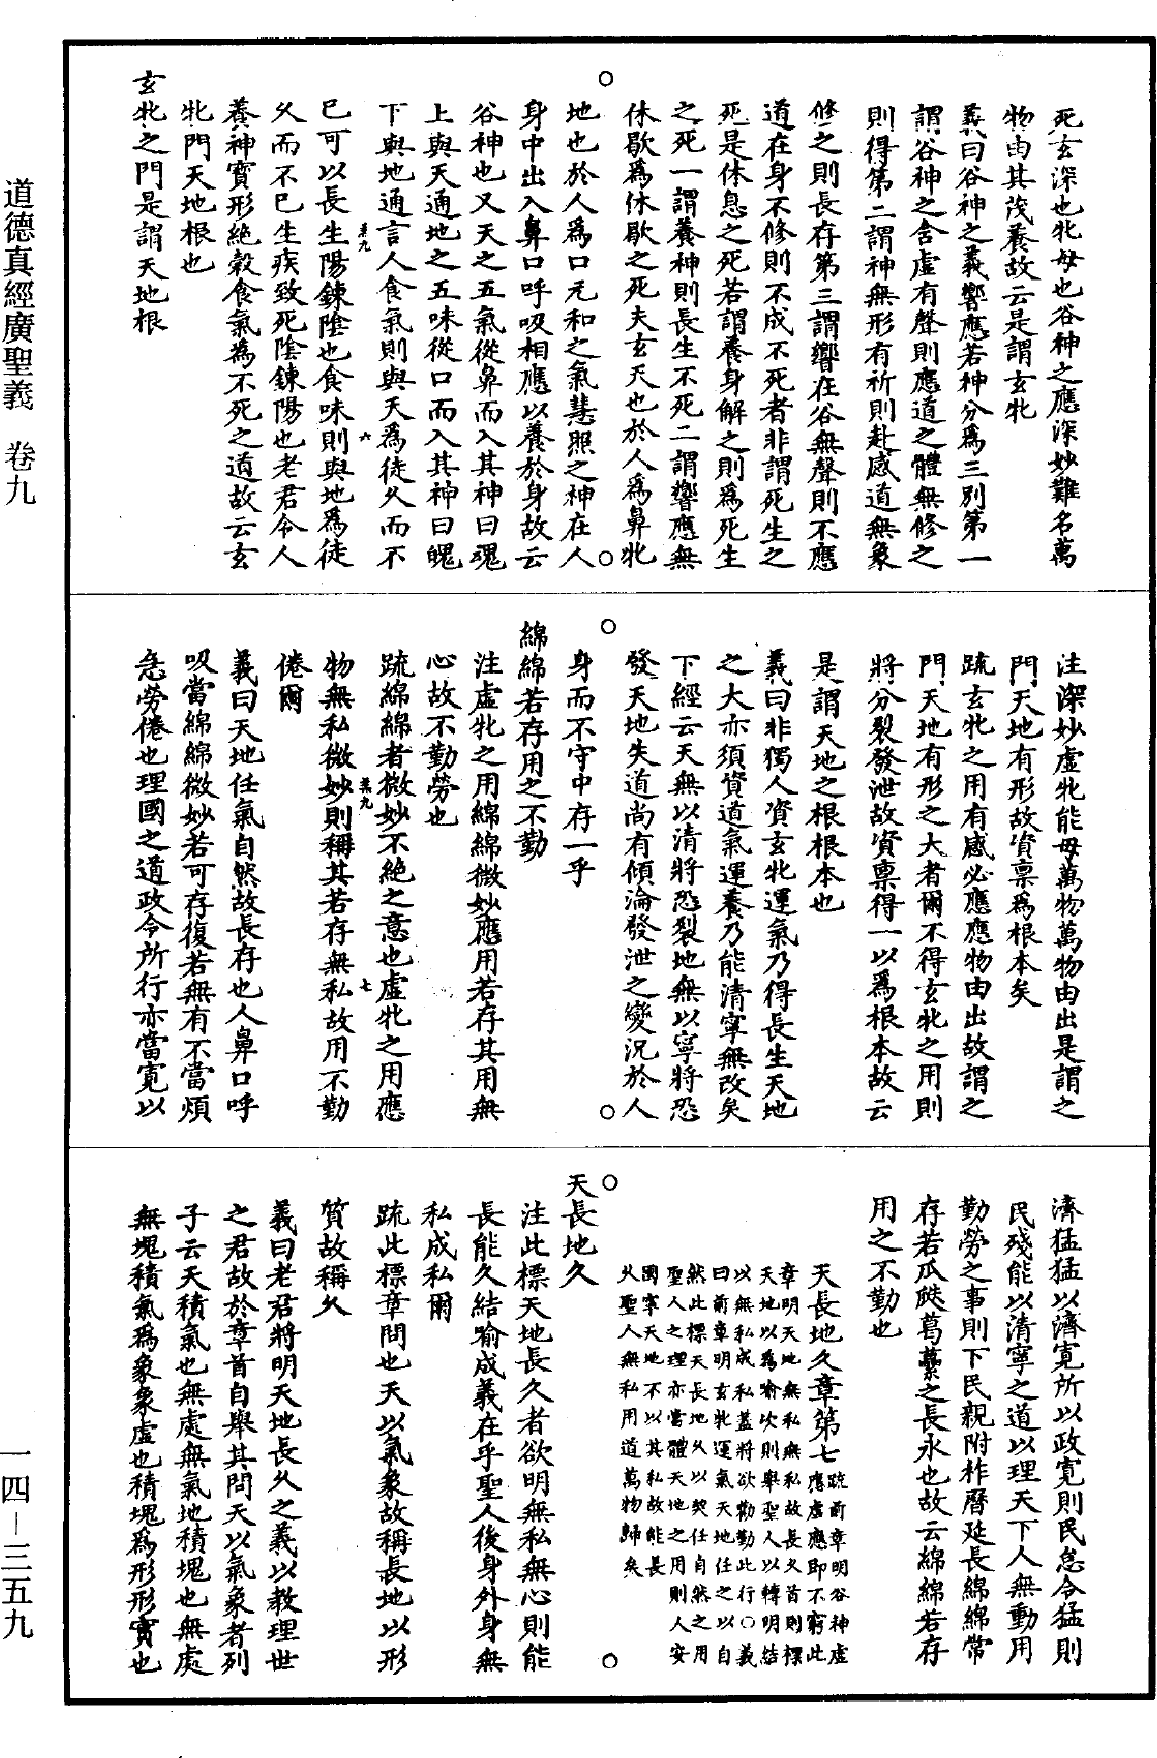 道德真經廣聖義　卷九
一四—三五九
死玄深也牝母也谷神之應深妙難名萬
物由其茂養故云是謂玄牝
義曰谷神之義響應若神分為三別第一
謂谷神之含虛有聲則應道之體無修之
則得第二謂神無形有祈則赴感道無象
修之則長存第三謂響在谷無聲則不應
道在身不修則不成不死者非謂死生之
死是休息之死若謂養身解之則為死生
之死一謂養神則長生不死二謂響應無
休歇為休歇之死夫玄天也於人為鼻牝
地也於人為口元和之氣慧照之神在人
身中出入鼻口呼吸相應以養於身故云
谷神也又天之五氣從鼻而入其神曰魂
上與天通地之五味從口而入其神曰魄
下與地通言人食氣則與天為徒久而不
已可以長生陽鍊陰也食味則與地為徒
久而不已生疾致死陰鍊陽也老君令人
養神寶形絕穀食氣為不死之道故云玄
牝門天地根也
玄牝之門是謂天地根
注深妙虛牝能母萬物萬物由出是謂之
門天地有形故資稟為根本矣
疏玄牝之用有感必應應物由出故謂之
門天地有形之大者爾不得玄牝之用則
將分裂發泄故資稟得一以為根本故云
是謂天地之根根本也
義曰非獨人資玄牝運氣乃得長生天地
之大亦須資道氣運養乃能清寧無改矣
下經云天無以清將恐裂地無以寧將恐
發天地失道尚有傾淪發泄之變況於人
身而不守中存一乎
綿綿若存用之不勤
注虛牝之用綿綿微妙應用若存其用無
心故不勤勞也
疏綿綿者微妙不絕之意也虛牝之用應
物無私微妙則稱其若存無私故用不勤
倦爾
義曰天地任氣自然故長存也人鼻口呼
吸當綿綿微妙若可存復若無有不當煩
急勞倦也理國之道政令所行亦當寬以
濟猛猛以濟寬所以政寬則民怠令猛則
民殘能以清寧之道以理天下人無動用
勤勞之事則下民親附柞曆延長綿綿常
存若瓜瓞葛藟之長永也故云綿綿若存
用之不勤也
天長地久章第七
疏前章明谷神虛
應虛應即不窮此
章明天地無私無私故長久首則標
天地以為喻次則舉聖人以轉明結
以無私成私蓋將欲勸勤此行○義
曰前章明玄牝運氣天地任之以自
然此標天長地久以契任自然之用
聖人之理亦當體天地之用則人安
國寧天地不以其私故能長
久聖人無私用道萬物歸矣
天長地久
注此標天地長久者欲明無私無心則能
長能久結喻成義在乎聖人後身外身無
私成私爾
疏此標章問也天以氣象故稱長地以形
質故稱久
義曰老君將明天地長久之義以教理世
之君故於章首自舉其問天以氣象者列
子云天積氣也無處無氣地積塊也無處
無塊積氣為象象虛也積塊為形形實也